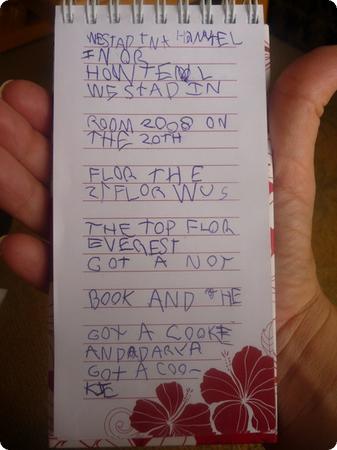 WESTAD IN A HAWTEL
IN OR
HOWTEUL
WESTAD IN
ROOM 2008 ON
THE 20TH
FLOR THE
21 FLOR WUS
THE TOP FLOR
EVEREST
GOT A NOT
BOOK AND THE
GOT A COOKE
AND A DARYA
GOT A COO-
KIE